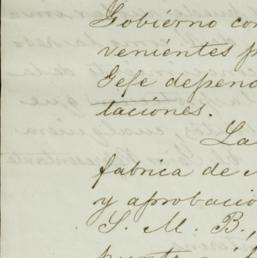 Gobierno con
venientes p
Gefe depend
taciones.
La
fabrica de
y aprobació
S. M. B.,